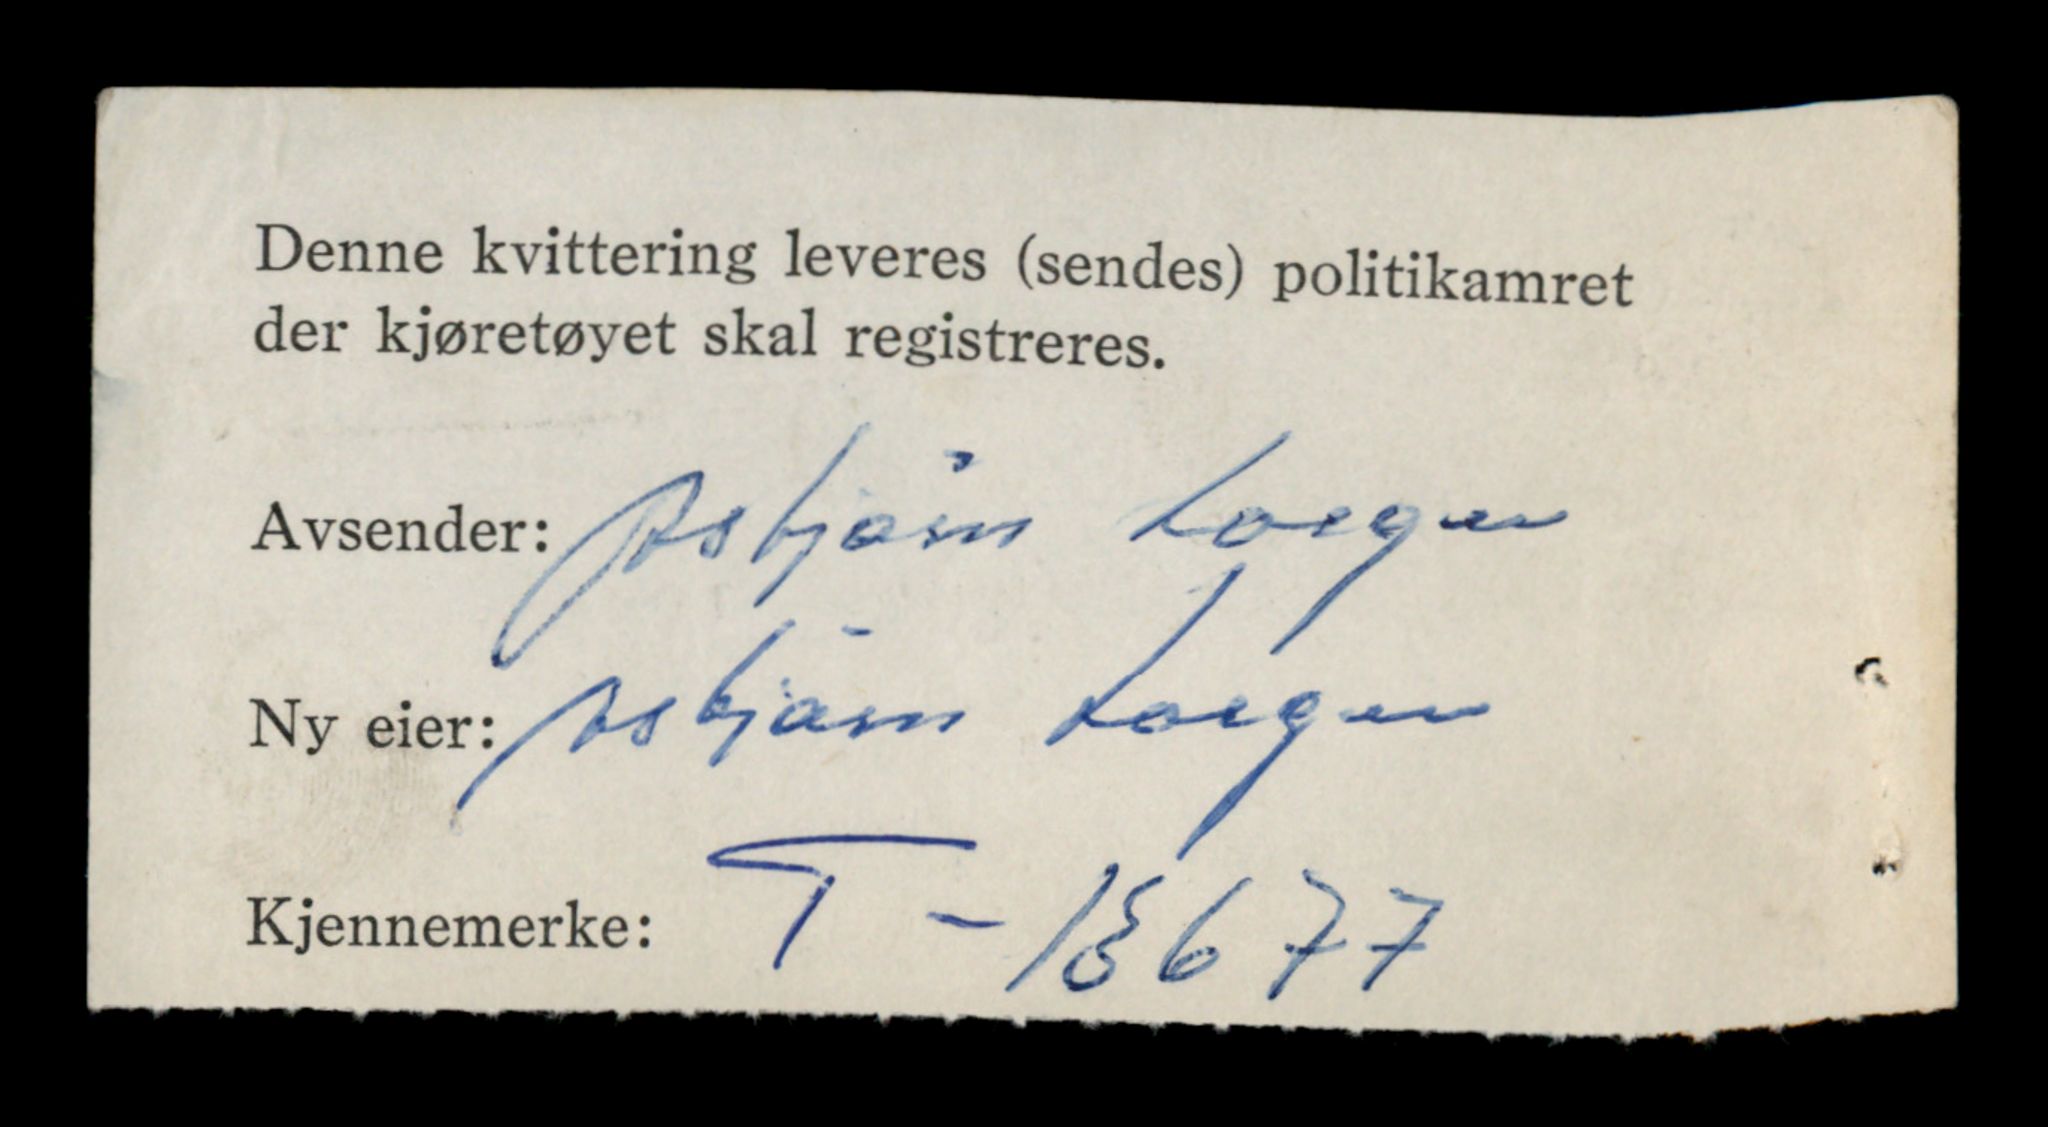 Denne kvittering leveres (sendes) politikamret
der kjøretøyet skal registreres.
Avsender: Asbjørn
Ny eier: Asbjørn
Kjennemerke: T - 13677